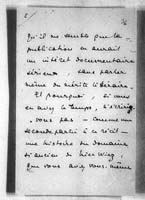 2/
Qu'il me semble que la
publication en aurait
un intérêt documentaire
sérieux, sans parler
même du mérite littéraire.
Et pourquoi, si vous
en avez le temps, n'écririez
vous pas – comme une
seconde partie à ce récit –
une histoire du domaine
si ancien de
Que vous avez vous-même